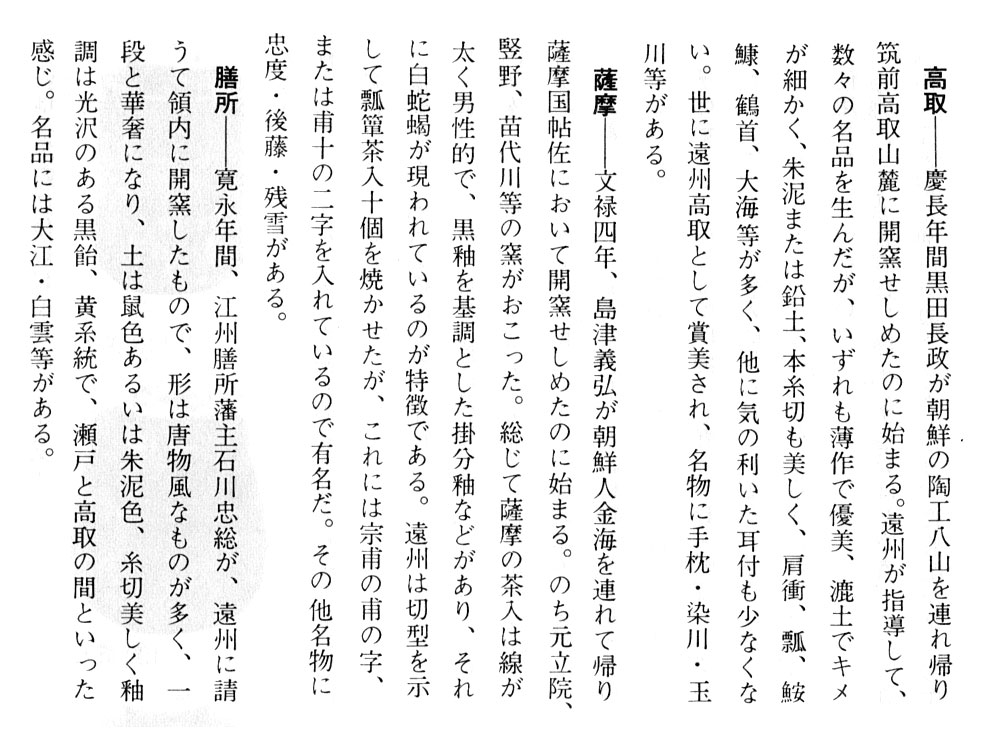 高取――慶長年間黒田長政が朝鮮の陶工八山を連れ帰り
筑前高取山麓に開窯せしめたのに始まる。遠州が指導して、
数々の名品を生んだが、いずれも薄作で優美、漉土でキメ
が細かく、朱泥または鉛土、本糸切も美しく、肩衝、瓢、鮟
鱇、鶴首、大海等が多く、他に気の利いた耳付も少なくな
い。世に遠州高取として賞美され、名物に手枕・染川・玉
川等がある。
薩摩――文禄四年、島津義弘が朝鮮人金海を連れて帰り
薩摩国帖佐において開窯せしめたのに始まる。のち元立院、
竪野、苗代川等の窯がおこった。総じて薩摩の茶入は線が
太く男性的で、黒釉を基調とした掛分釉などがあり、それ
に白蛇蝎が現われているのが特徴である。遠州は切型を示
して瓢簞茶入十個を焼かせたが、これには宗甫の甫の字、
または甫十の二字を入れているので有名だ。その他名物に
忠度・後藤・残雪がある。
膳所――寛永年間、江州膳所藩主石川忠総が、遠州に請
うて領内に開窯したもので、形は唐物風なものが多く、一
段と華奢になり、土は鼠色あるいは朱泥色、糸切美しく釉
調は光沢のある黒飴、黄系統で、瀬戸と高取の間といった
感じ。名品には大江・白雲等がある。